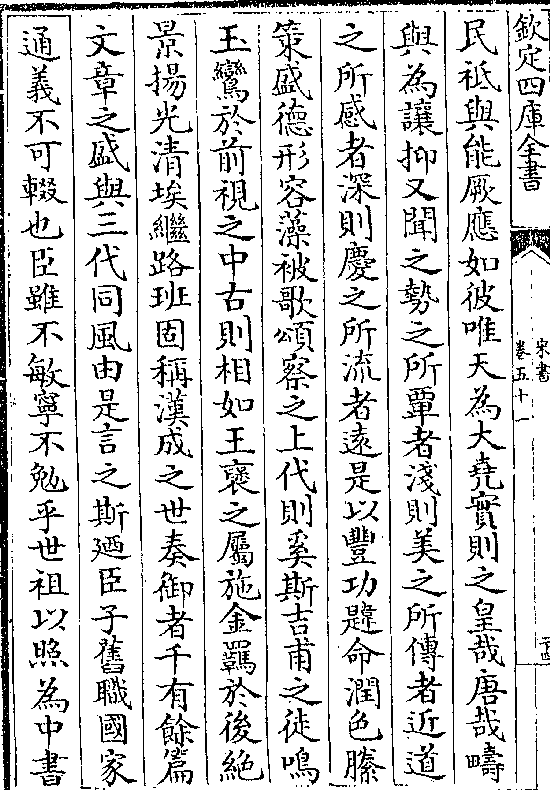 欽定四庫全書
宋書
卷五十一
民祇與能厥應如彼唯天為大堯實則之皇哉唐哉疇
與為讓抑又聞之勢之所覃者淺則美之所傳者近道
之所感者深則慶之所流者遠是以豐功韙命潤色縢
策盛德形容藻被歌頌察之上代則奚斯吉甫之徒鳴
玉鸞於前視之中古則相如王襃之屬施金羈於後絶
景揚光清埃繼路班固稱漢成之世奏御者千有餘篇
文章之盛與三代同風由是言之斯廼臣子舊職國家
通義不可輟也臣雖不敏寧不勉乎世祖以照為中書